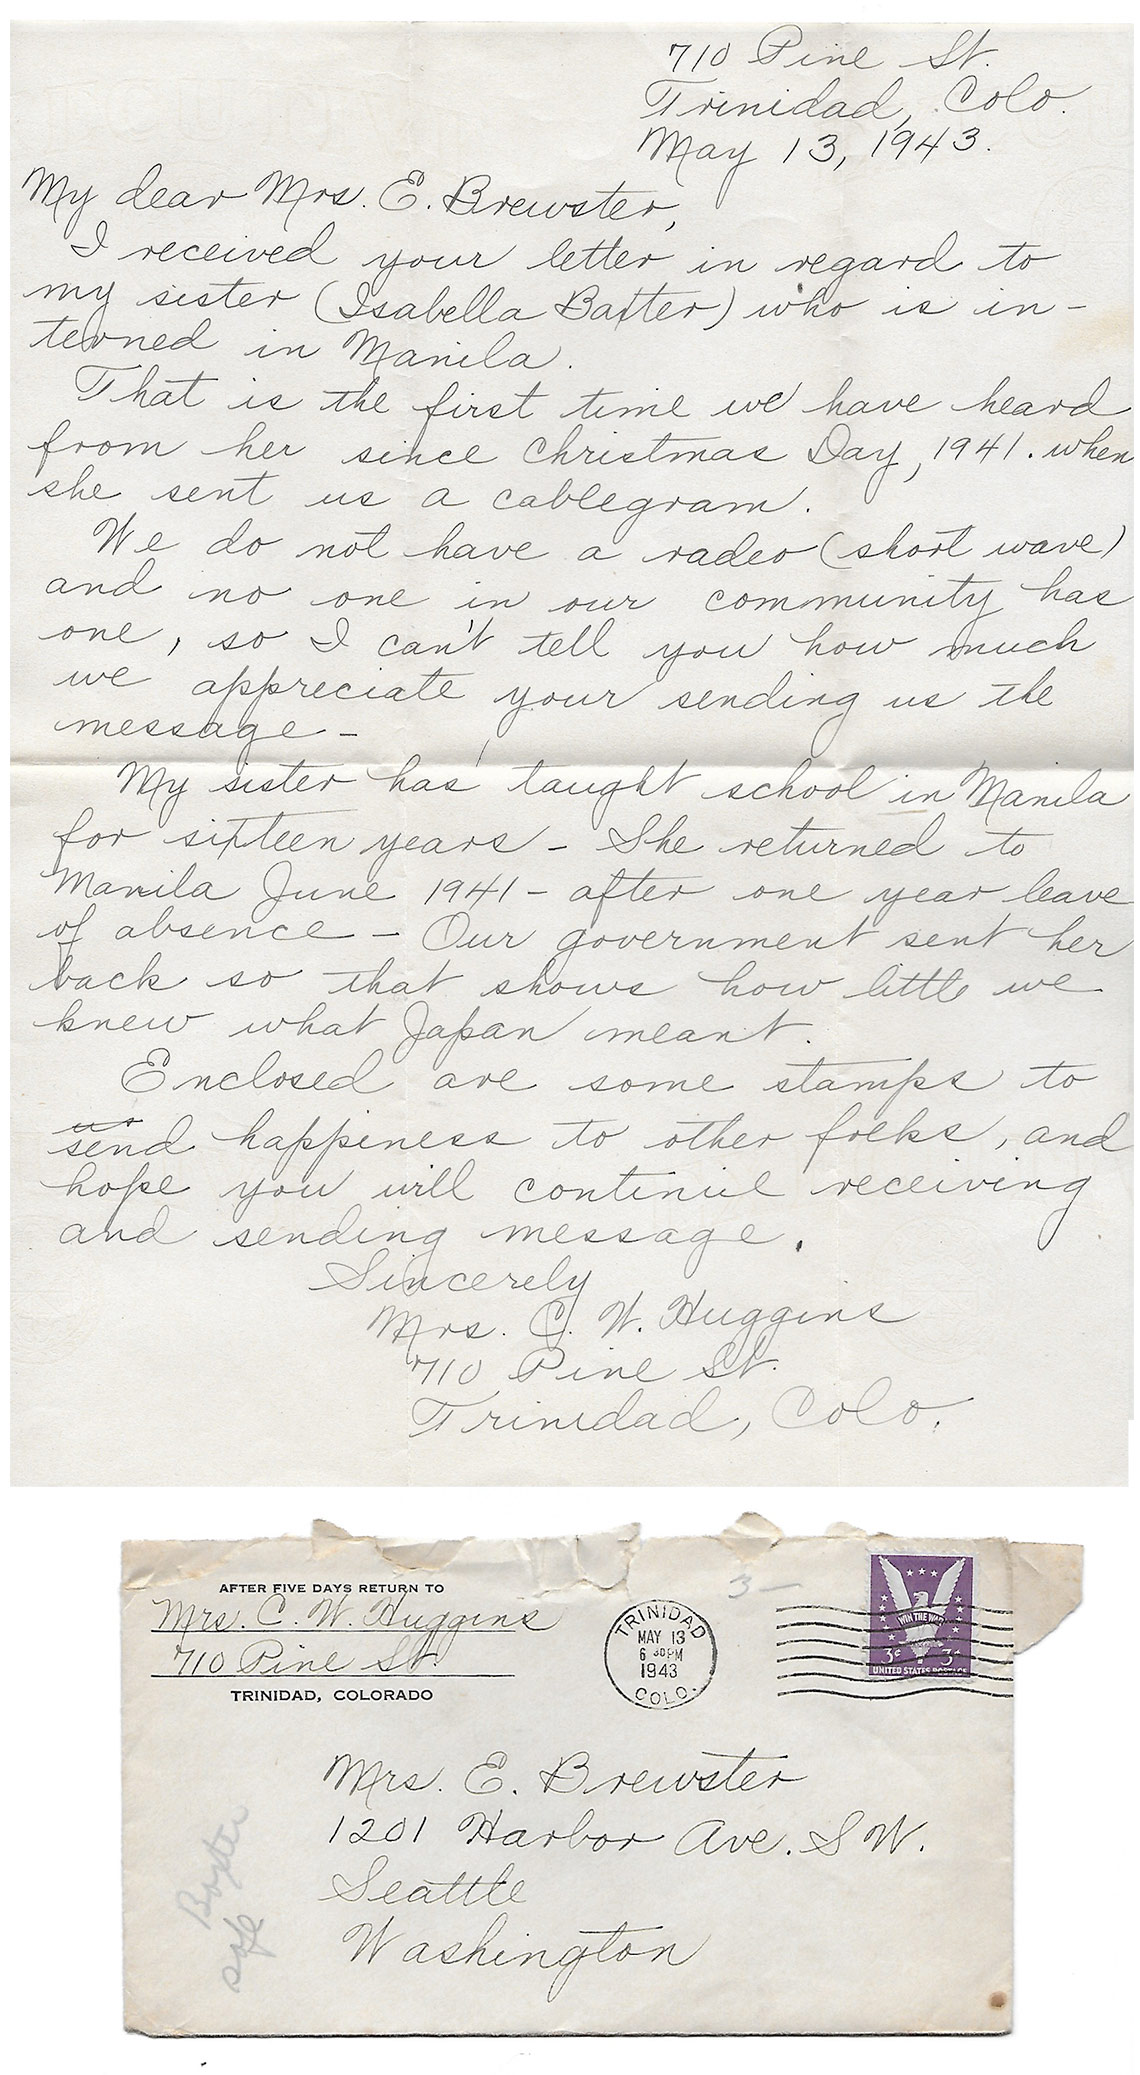 710 Pine St.
Trinidad, Colo.
May 13, 1943.
My dear Mrs. E. Brewster,
I received your letter in regard to
my sister (Isabella Baxter) who is in-
terned in Manila.
That is the first time we have heard
from her since Christmas Day, 1941. when
she sent us a cablegram.
We do not have a radeo (short wave)
and no one in our community has
one, so I can't tell you how much
we appreciate your sending us the
message -
My sister has taught school in Manila
for sixteen years - She returned to
Manila June 1941 - after one year leave
of absence - Our government sent her
back so that shows how little we
knew what Japan meant.
Enclosed are some stamps to
send happiness to other folks, and
hope you will continue receiving
and sending message.
Sincerely
Mrs. C. W. Huggins
710 Pine St.
Trinidad, Colo.
AFTER FIVE DAYS RETURN TO
Mrs. C. W. Huggins
710 Pine St.
TRINIDAD, COLORADO
3-
TRINIDAD
MAY 13
6 30 PM
1943
COLO.
WIN THE WAR
3¢ 3¢
UNITED STATES POSTAGE
Mrs. E. Brewster
1201 Harbor Ave. S W.
Seattle
Washington
Baxter
safe